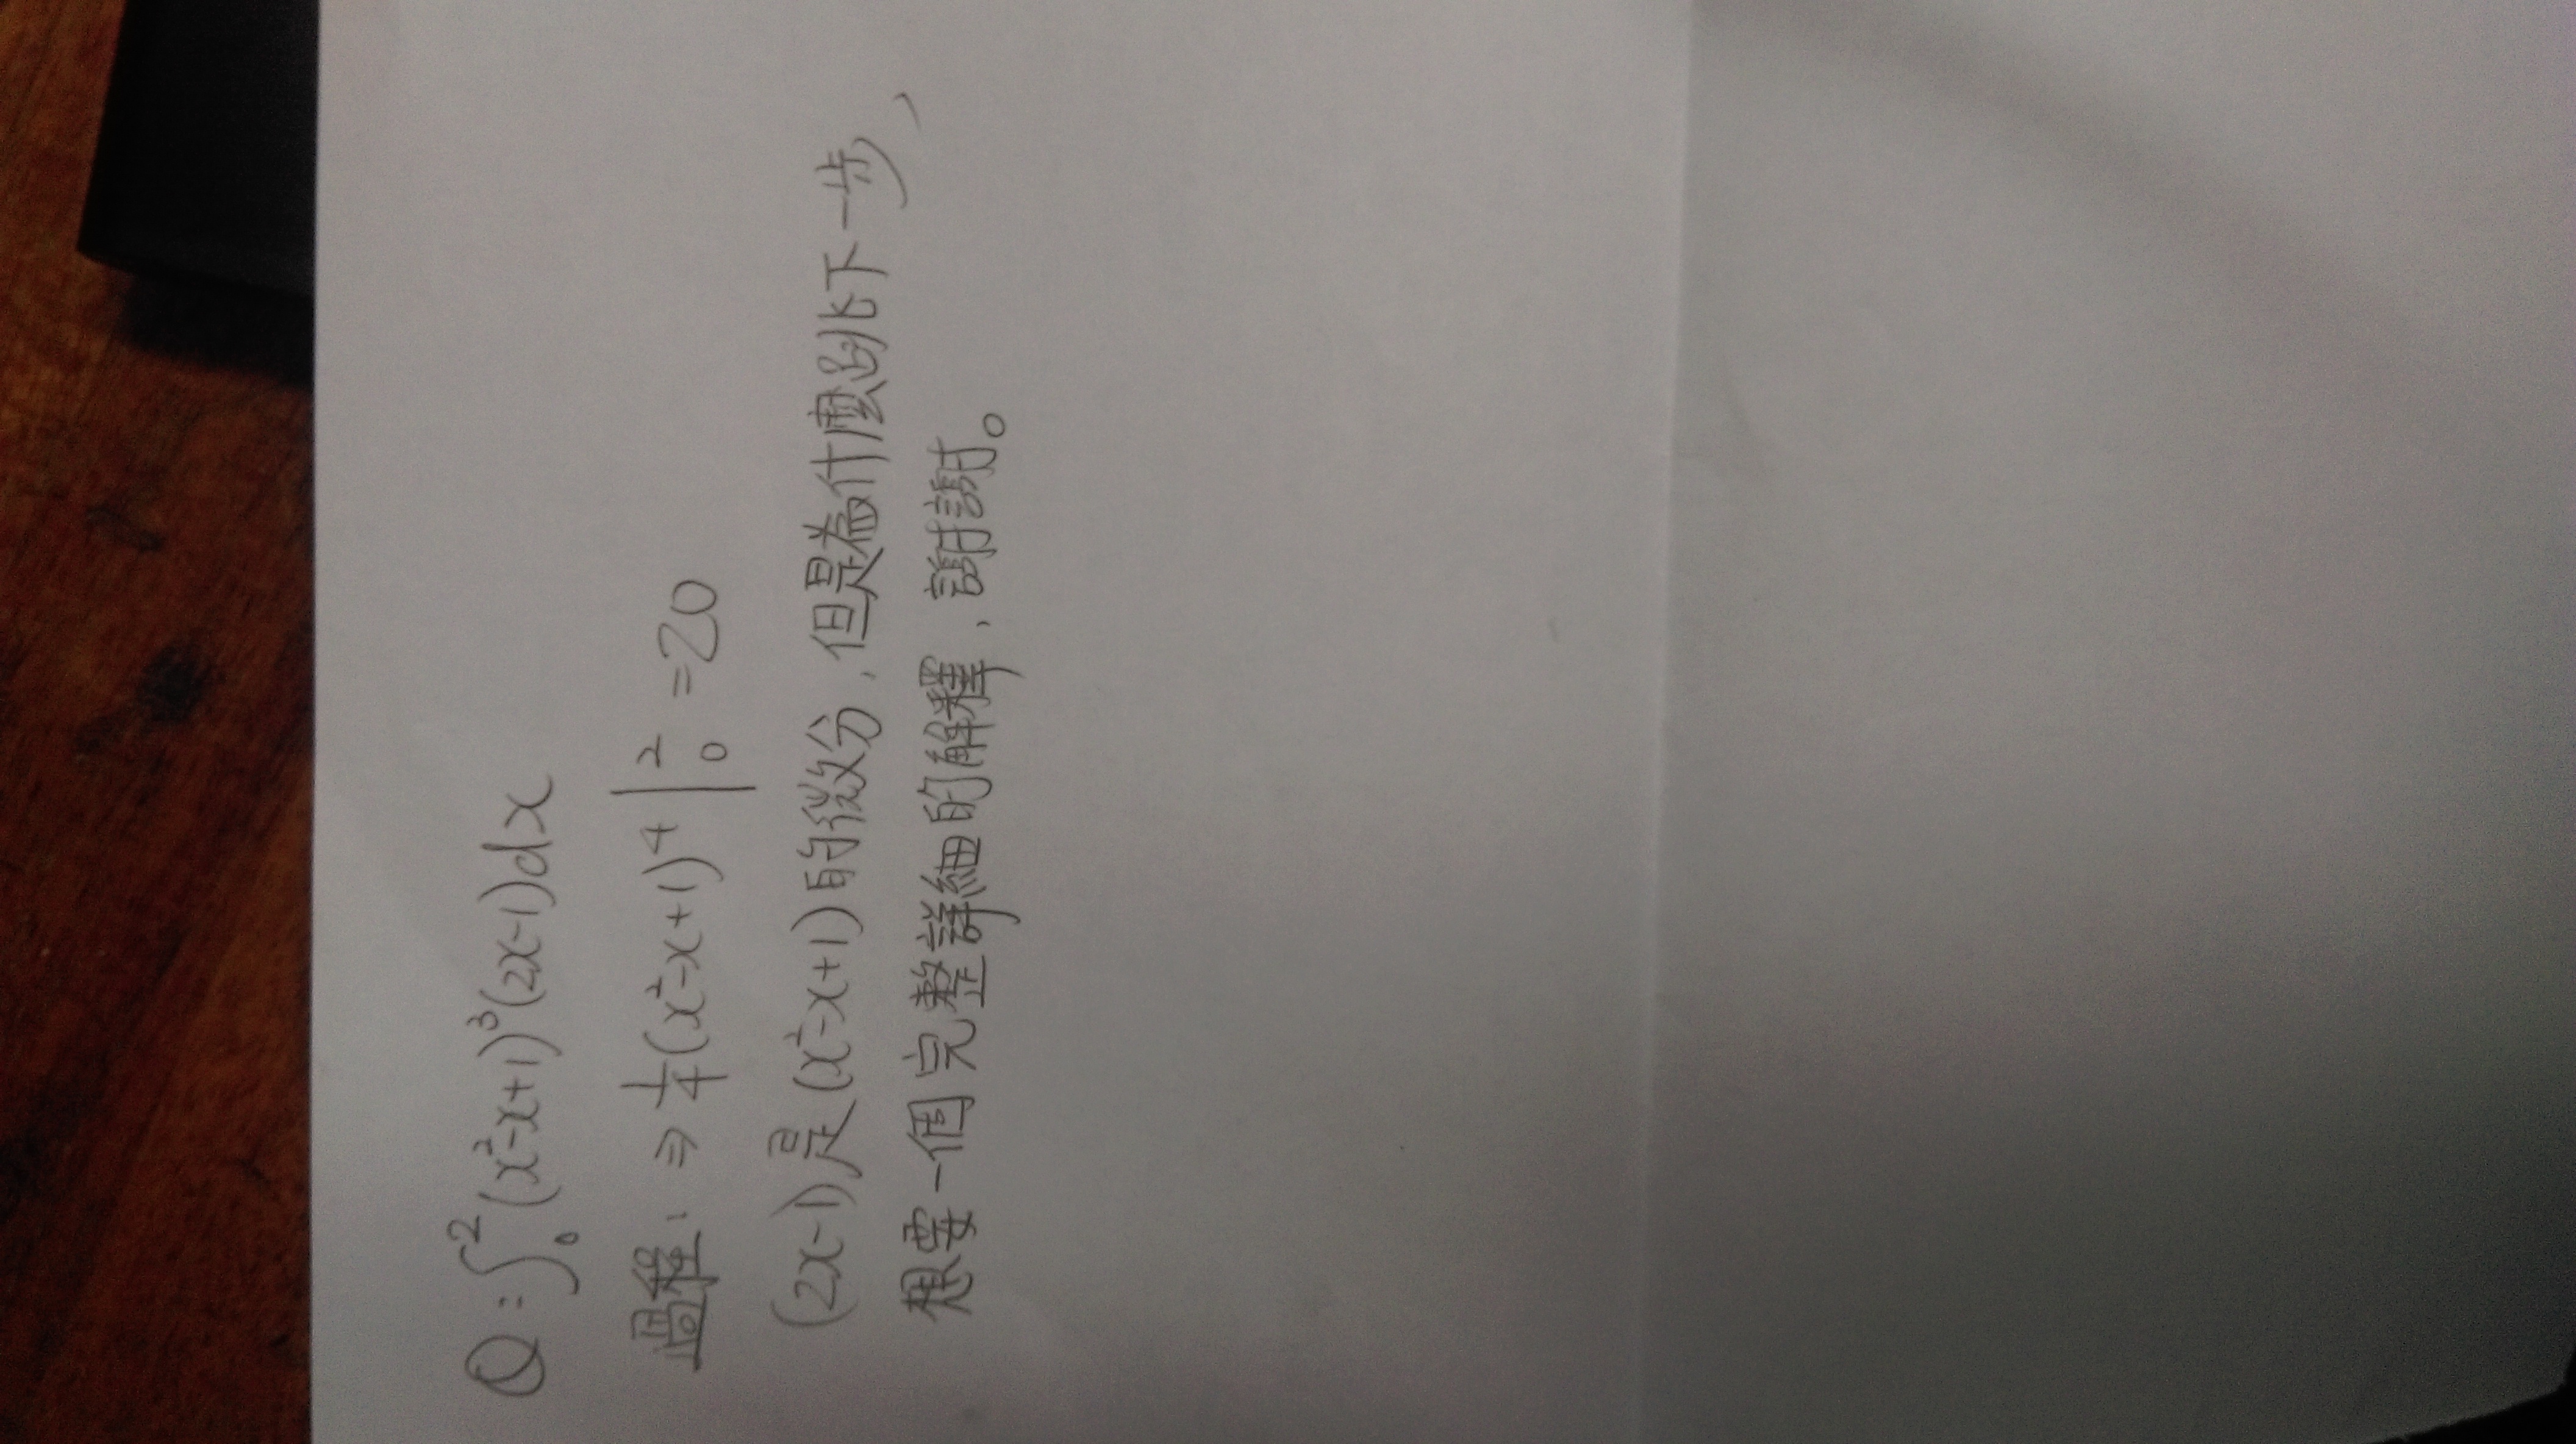 Q：∫₀²(x²-x+1)³(2x-1)dx
過程：⇒ 1/4(x²-x+1)⁴|₀² = 20
(2x-1)是(x²-x+1)的微分，但是為什麼跳下一步、
想要一個完整詳細的解釋，謝謝。